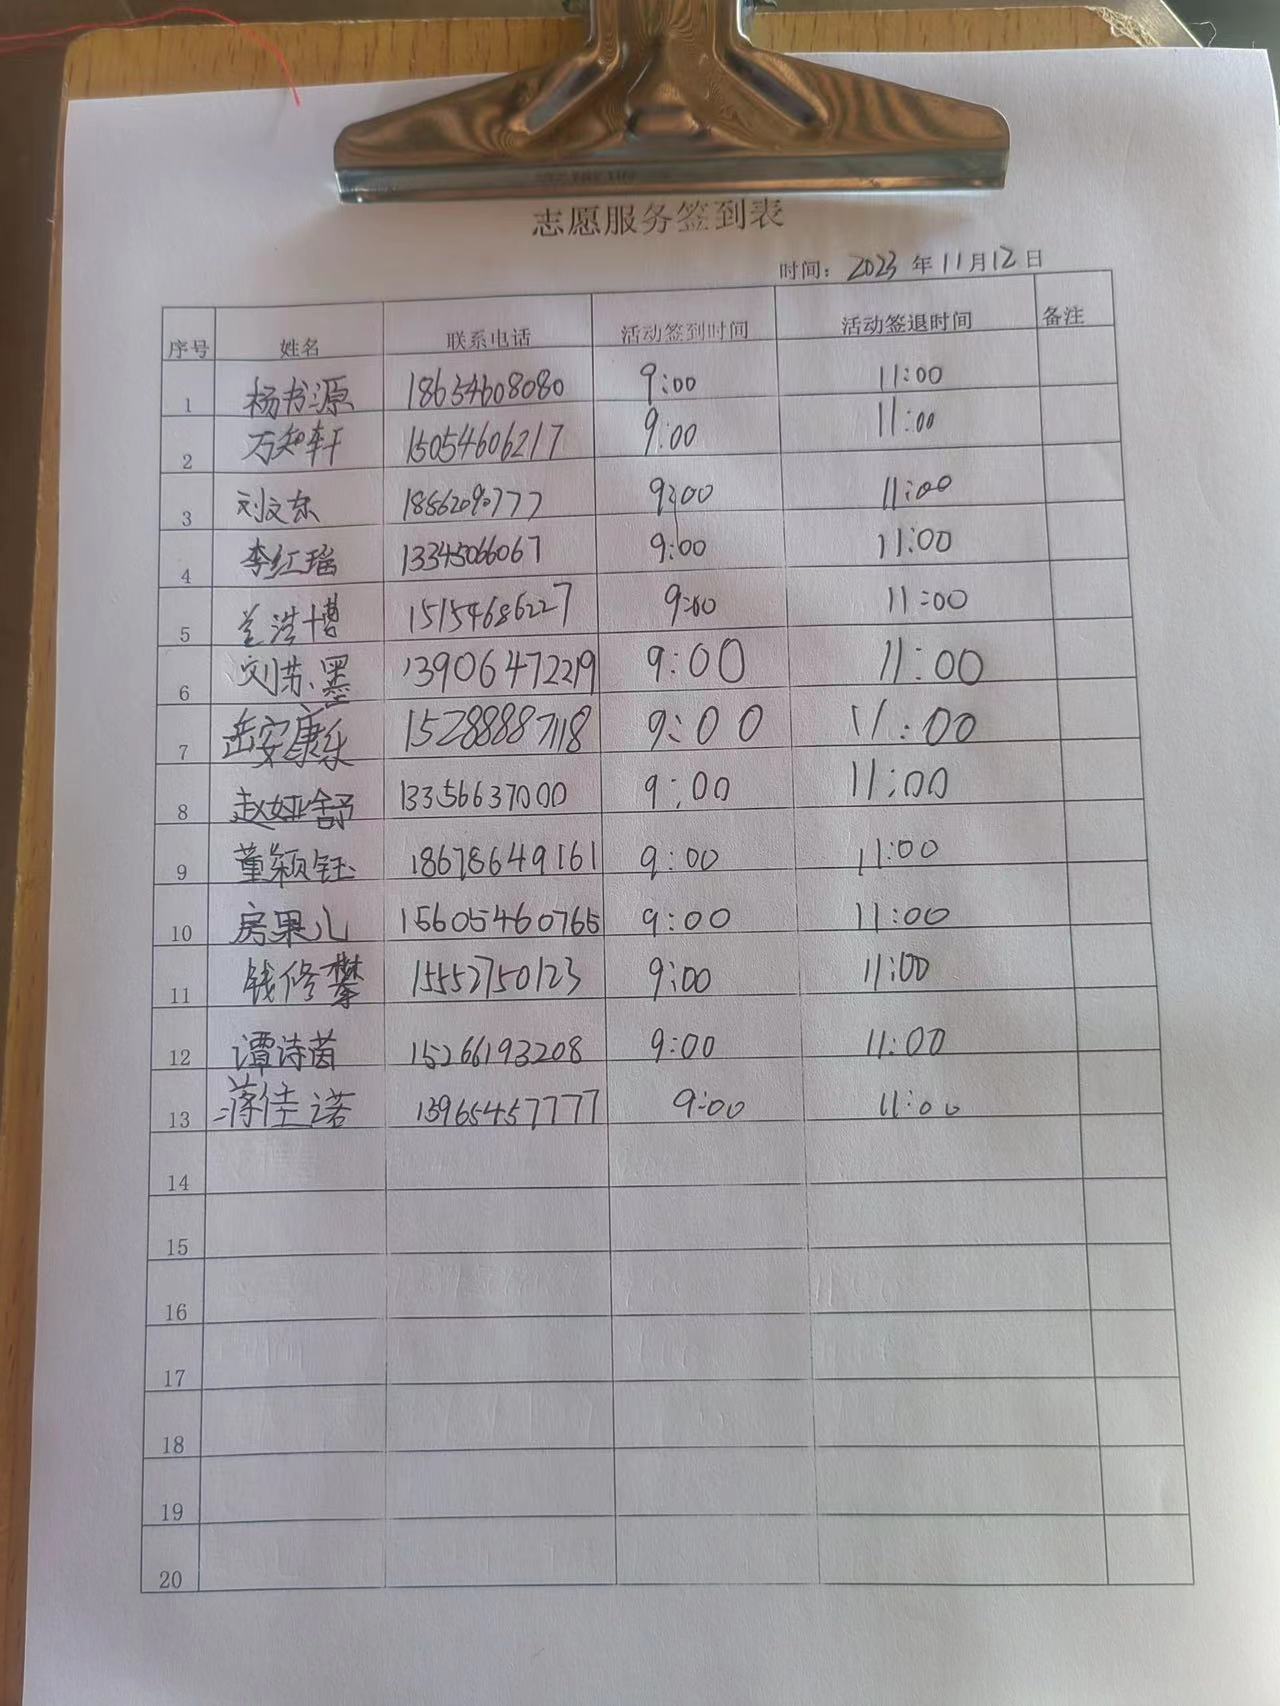 志愿服务签到表
时间：2023 年 11 月 12 日
序号 姓名 联系电话 活动签到时间 活动签退时间 备注
1 杨书源 18654608080 9:00 11:00
2 万知轩 15054606217 9:00 11:00
3 刘文东 18562090777 9:00 11:00
4 李红瑶 13345066067 9:00 11:00
5 兰浩博 15154686227 9:00 11:00
6 刘苏墨 13906472219 9:00 11:00
7 岳安康乐 15288887118 9:00 11:00
8 赵娅舒 13356637000 9:00 11:00
9 董颖钰 18678649161 9:00 11:00
10 房果儿 15605460765 9:00 11:00
11 钱修攀 15552750123 9:00 11:00
12 谭诗茵 15266193208 9:00 11:00
13 蒋佳诺 13965457777 9:00 11:00
14
15
16
17
18
19
20